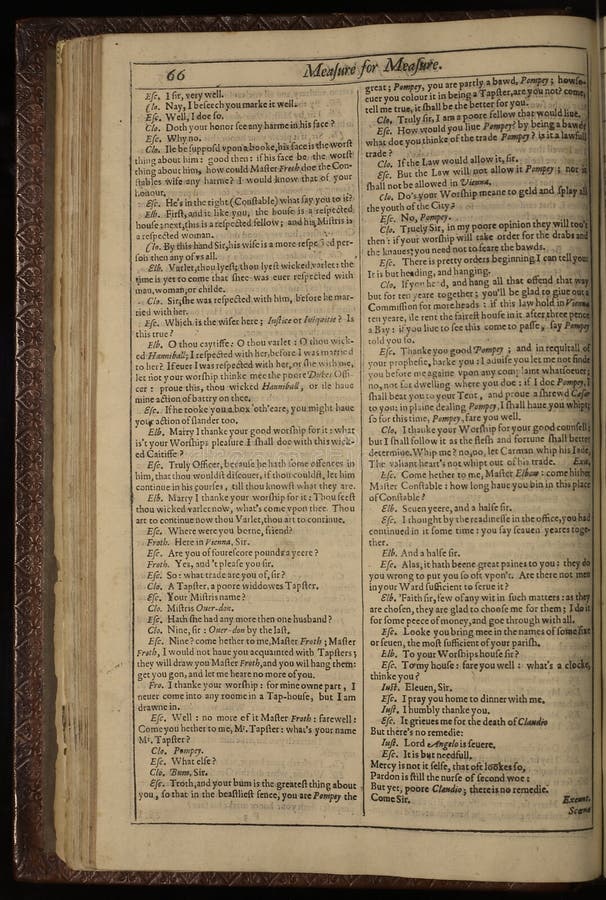 66
Meaſure for Meaſure.
Eſc. I ſir, very well.
Clo. Nay, I beſeech you marke it well.
Eſc. Well, I doe ſo.
Clo. Doth your honor ſee any harme in his face?
Eſc. Why no.
Clo. Ile be ſuppoſd vpon a booke, his face is the worſt
thing about him: good then: if his face be the worſt
thing about him, how could Maſter Froth doe the Con-
ſtables wife any harme? I would know that of your
honour.
Eſc. He's in the right (Conſtable) what ſay you to it?
Elb. Firſt, and it like you, the houſe is a reſpected
houſe; next, this is a reſpected fellow; and his Miſtris is
a reſpected woman.
Clo. By this hand Sir, his wife is a more reſpected per-
ſon then any of vs all.
Elb. Varlet, thou lyeſt; thou lyeſt wicked varlet: the
time is yet to come that ſhee was euer reſpected with
man, woman, or childe.
Clo. Sir, ſhe was reſpected with him, before he mar-
ried with her.
Eſc. Which is the wiſer here; Iuſtice or Iniquitie? Is
this true?
Elb. O thou caytiffe: O thou varlet: O thou wick-
ed Hanniball; I reſpected with her, before I was married
to her? If euer I was reſpected with her, or ſhe with me,
let not your worſhip thinke mee the poore Dukes Offi-
cer: proue this, thou wicked Hanniball, or ile haue
mine action of battry on thee.
Eſc. If he tooke you a box 'oth'eare, you might haue
your action of ſlander too.
Elb. Marry I thanke your good worſhip for it: what
is't your Worſhips pleaſure I ſhall doe with this wick-
ed Caitiffe?
Eſc. Truly Officer, becauſe he hath ſome offences in
him, that thou wouldſt diſcouer, if thou couldſt, let him
continue in his courſes, till thou knowſt what they are.
Elb. Marry I thanke your worſhip for it: Thou ſeeſt
thou wicked varlet now, what's come vpon thee. Thou
art to continue now thou Varlet, thou art to continue.
Eſc. Where were you borne, friend?
Froth. Here in Vienna, Sir.
Eſc. Are you of foureſcore pounds a yeere?
Froth. Yes, and 't pleaſe you ſir.
Eſc. So: what trade are you of, ſir?
Clo. A Tapſter, a poore widdowes Tapſter.
Eſc. Your Miſtris name?
Clo. Miſtris Ouer-don.
Eſc. Hath ſhe had any more then one husband?
Clo. Nine, ſir: Ouer-don by the laſt.
Eſc. Nine? come hether to me, Maſter Froth; Maſter
Froth, I would not haue you acquainted with Tapſters;
they will draw you Maſter Froth, and you wil hang them:
get you gon, and let me heare no more of you.
Fro. I thanke your worſhip: for mine owne part, I
neuer come into any roome in a Tap-houſe, but I am
drawne in.
Eſc. Well: no more of it Maſter Froth: farewell:
Come you hether to me, Mr. Tapſter: what's your name
Mr. Tapſter?
Clo. Pompey.
Eſc. What elſe?
Clo. Bum, Sir.
Eſc. Troth, and your bum is the greateſt thing about
you, ſo that in the beaſtlieſt ſence, you are Pompey the
great; Pompey, you are partly a bawd, Pompey; howſo-
euer you colour it in being a Tapſter, are you not? come,
tell me true, it ſhall be the better for you.
Clo. Truly ſir, I am a poore fellow that would liue.
Eſc. How would you liue Pompey? by being a bawd?
what doe you thinke of the trade Pompey? is it a lawfull
trade?
Clo. If the Law would allow it, ſir.
Eſc. But the Law will not allow it Pompey; nor it
ſhall not be allowed in Vienna.
Clo. Do's your Worſhip meane to geld and ſplay all
the youth of the City?
Eſc. No, Pompey.
Clo. Truely Sir, in my poore opinion they will too't
then: if your worſhip will take order for the drabs and
the knaues, you need not to feare the bawds.
Eſc. There is pretty orders beginning I can tell you:
It is but heading, and hanging.
Clo. If you head, and hang all that offend that way
but for ten yeare together; you'll be glad to giue out a
Commiſſion for more heads: if this law hold in Vienna
ten yeare, ile rent the faireſt houſe in it after three pence
a Bay: if you liue to ſee this come to paſſe, ſay Pompey
told you ſo.
Eſc. Thanke you good Pompey; and in requitall of
your propheſie, harke you: I aduiſe you let me not finde
you before me againe vpon any complaint whatſoeuer;
no, not for dwelling where you doe: if I doe Pompey, I
ſhall beat you to your Tent, and proue a ſhrewd Cæſar
to you: in plaine dealing Pompey, I ſhall haue you whipt;
ſo for this time, Pompey, fare you well.
Clo. I thanke your Worſhip for your good counſell;
but I ſhall follow it as the fleſh and fortune ſhall better
determine. Whip me? no, no, let Carman whip his Iade,
The valiant heart's not whipt out of his trade. Exit.
Eſc. Come hether to me, Maſter Elbow: come hither
Maſter Conſtable: how long haue you bin in this place
of Conſtable?
Elb. Seuen yeere, and a halfe ſir.
Eſc. I thought by the readineſſe in the office, you had
continued in it ſome time: you ſay ſeauen yeares toge-
ther.
Elb. And a halfe ſir.
Eſc. Alas, it hath beene great paines to you: they do
you wrong to put you ſo oft vpon't. Are there not men
in your Ward ſufficient to ſerue it?
Elb. 'Faith ſir, few of any wit in ſuch matters: as they
are choſen, they are glad to chooſe me for them; I do it
for ſome peece of money, and goe through with all.
Eſc. Looke you bring mee in the names of ſome ſixe
or ſeuen, the moſt ſufficient of your pariſh.
Elb. To your Worſhips houſe ſir?
Eſc. To my houſe: fare you well: what's a clocke,
thinke you?
Iuſt. Eleuen, Sir.
Eſc. I pray you home to dinner with me.
Iuſt. I humbly thanke you.
Eſc. It grieues me for the death of Claudio
But there's no remedie:
Iuſt. Lord Angelo is ſeuere.
Eſc. It is but needfull.
Mercy is not it ſelfe, that oft lookes ſo,
Pardon is ſtill the nurſe of ſecond woe:
But yet, poore Claudio; there is no remedie.
Come Sir. Exeunt.
Scæna